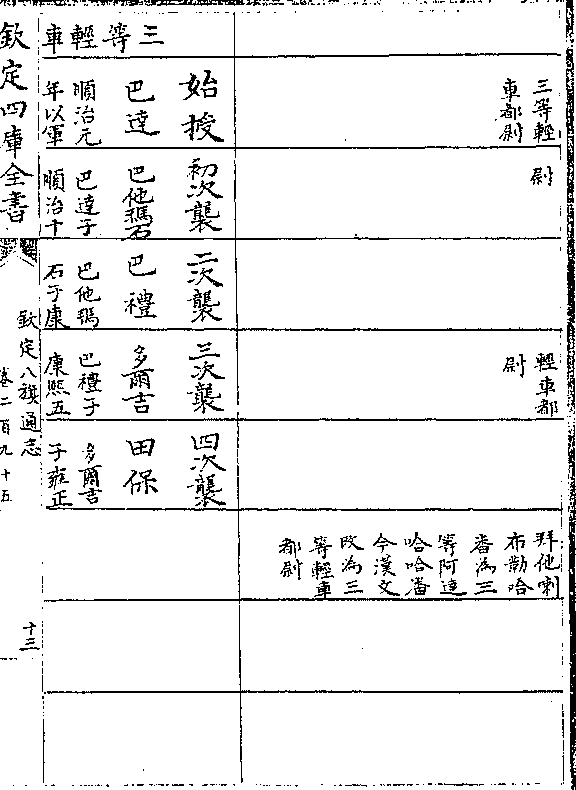 三等輕
車都尉
尉
輕車都
尉
拜他喇
布勒哈
番為三
等阿達
哈哈番
今漢文
改為三
等輕車
都尉
三等輕車
始授
巴達
順治元
年以軍
初次襲
巴他瑪石
巴達子
順治十
二次襲
巴禮
巴他瑪
石子康
三次襲
多爾吉
巴禮子
康熙五
四次襲
田保
多爾吉
子雍正
欽定四庫全書
欽定八旗通志
卷二百九十五
十三